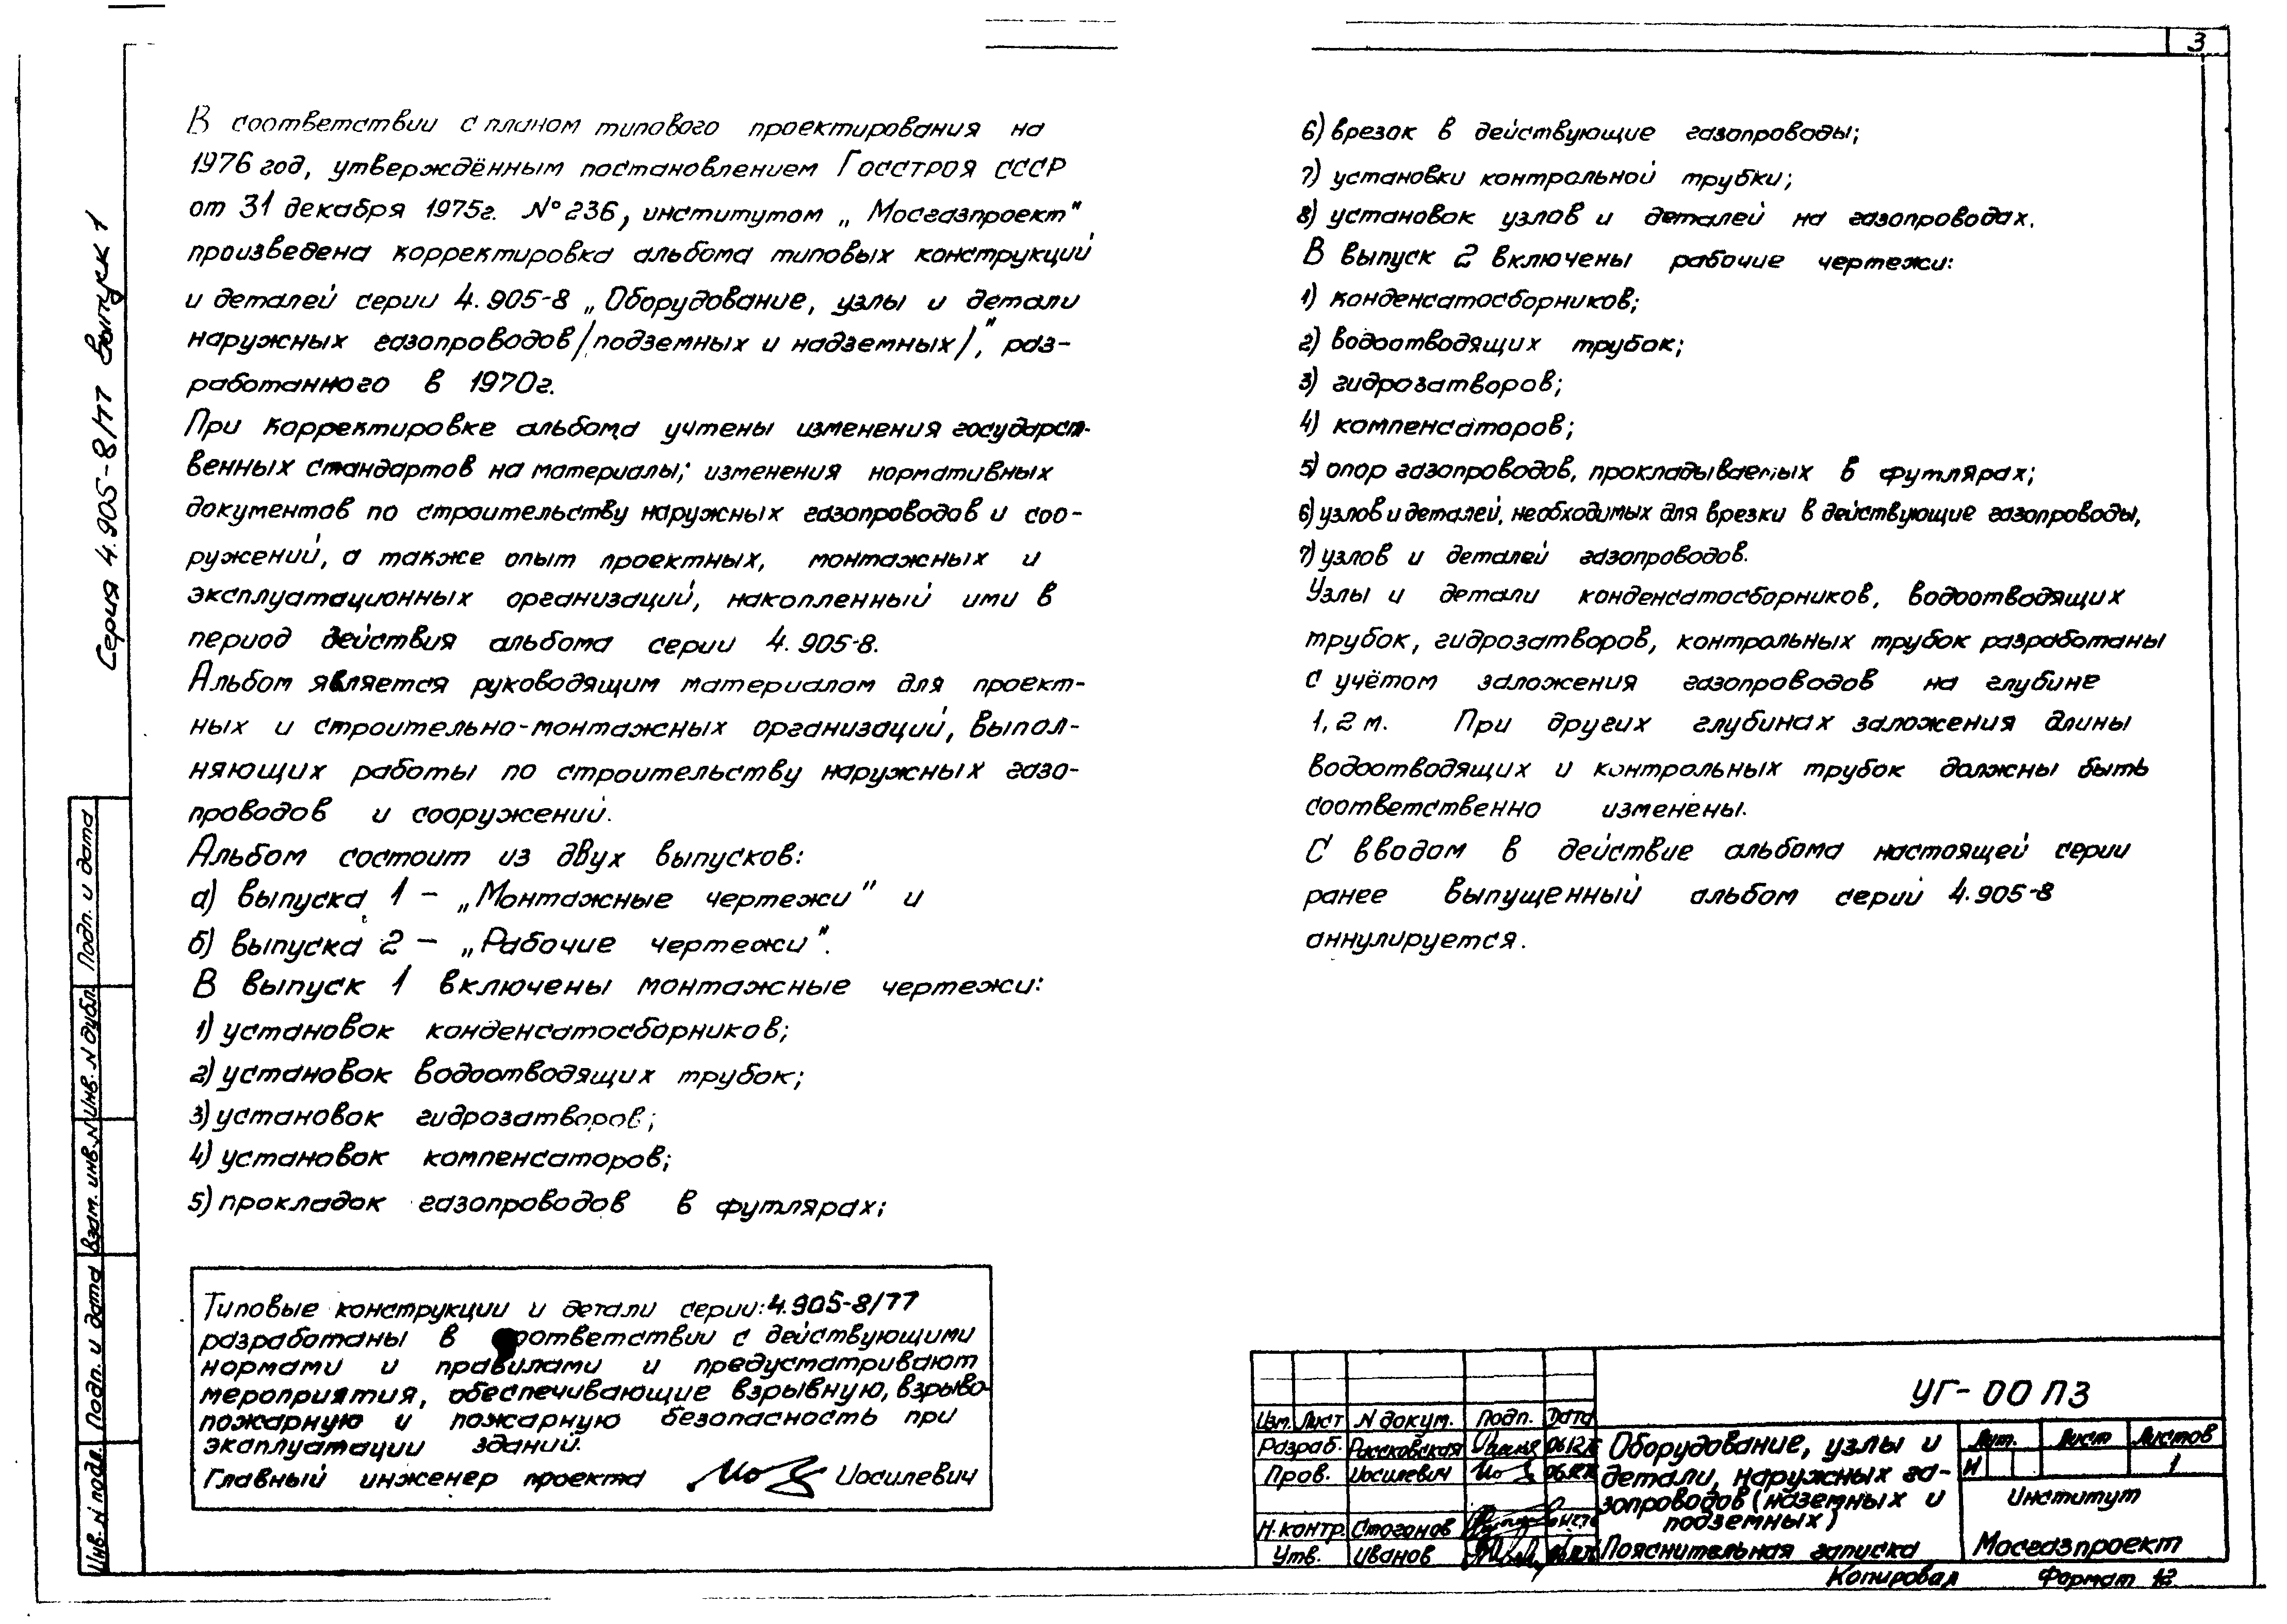 3
В соответствии с планом типового проектирования на
1976 год, утверждённым постановлением Госстроя СССР
от 31 декабря 1975г. №236, институтом „Мосгазпроект"
произведена корректировка альбома типовых конструкций
и деталей серии 4.905-8 „Оборудование, узлы и детали
наружных газопроводов/подземных и надземных/", раз-
работанного в 1970г.
При корректировке альбома учтены изменения государст-
венных стандартов на материалы; изменения нормативных
документов по строительству наружных газопроводов и соо-
ружений, а также опыт проектных, монтажных и
эксплуатационных организаций, накопленный ими в
период действия альбома серии 4.905-8.
Альбом является руководящим материалом для проект-
ных и строительно-монтажных организаций, выпол-
няющих работы по строительству наружных газо-
проводов и сооружений.
Альбом состоит из двух выпусков:
а) выпуска 1 - „Монтажные чертежи" и
б) выпуска 2 - „Рабочие чертежи".
В выпуск 1 включены монтажные чертежи:
1) установок конденсатосборников;
2) установок водоотводящих трубок;
3) установок гидрозатворов;
4) установок компенсаторов;
5) прокладок газопроводов в футлярах;
6) врезок в действующие газопроводы;
7) установки контрольной трубки;
8) установок узлов и деталей на газопроводах.
В выпуск 2 включены рабочие чертежи:
1) конденсатосборников;
2) водоотводящих трубок;
3) гидрозатворов;
4) компенсаторов;
5) опор газопроводов, прокладываемых в футлярах;
6) узлов и деталей, необходимых для врезки в действующие газопроводы,
7) узлов и деталей газопроводов.
Узлы и детали конденсатосборников, водоотводящих
трубок, гидрозатворов, контрольных трубок разработаны
с учётом заложения газопроводов на глубине
1,2 м. При других глубинах заложения длины
водоотводящих и контрольных трубок должны быть
соответственно изменены.
С вводом в действие альбома настоящей серии
ранее выпущенный альбом серий 4.905-8
аннулируется.
Типовые конструкции и детали серии: 4.905-8/77
разработаны в соответствии с действующими
нормами и правилами и предусматривают
мероприятия, обеспечивающие взрывную, взрыво-
пожарную и пожарную безопасность при
эксплуатации зданий.
Главный инженер проекта Иосилевич
Серия 4.905-8/77 Выпуск 1
Подп. и дата
Инв. N дубл.
Взам. инв. N
Подп. и дата
Инв. N подл.
УГ-00 ПЗ
Изм. Лист N докум. Подп. Дата
Разраб. Рассковская
Пров. Иосилевич
Н. контр. Стоганов
Утв. Иванов
Оборудование, узлы и
детали, наружных га-
зопроводов (наземных и
подземных)
Пояснительная записка
Лит. Лист Листов
И 1
Институт
Мосгазпроект
Копировал Формат 12